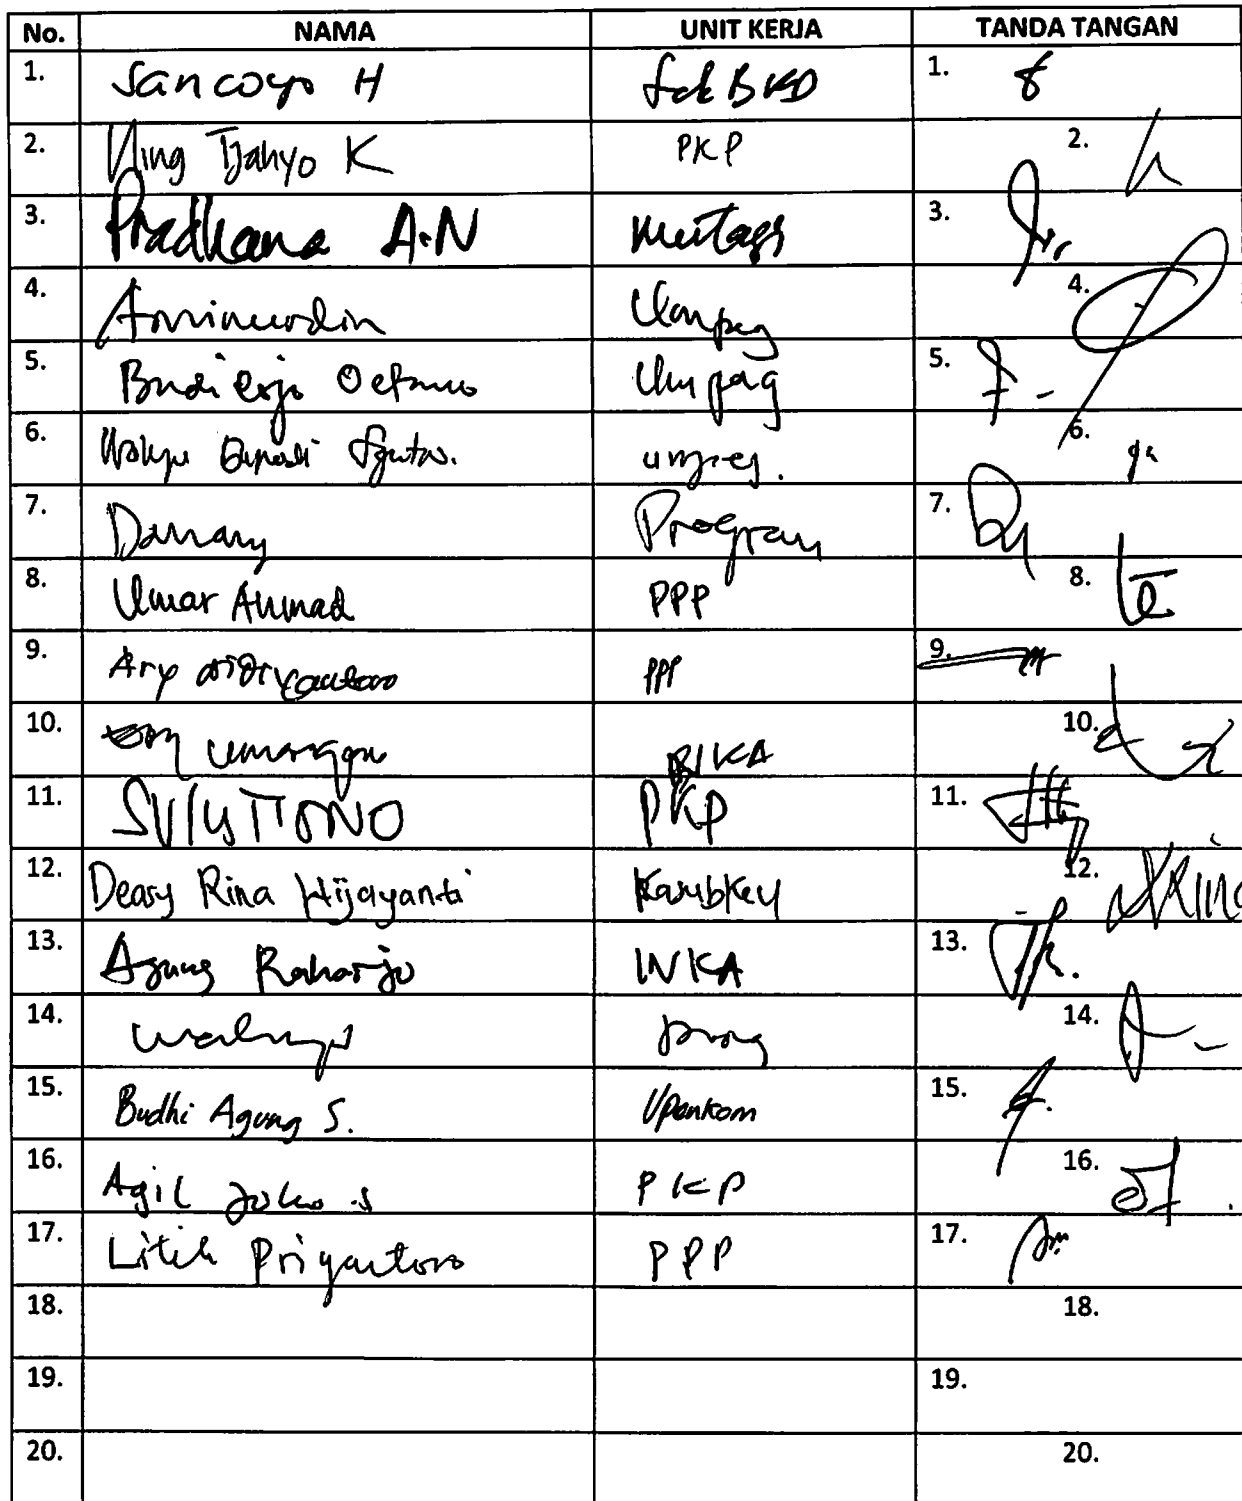 No. NAMA UNIT KERJA TANDA TANGAN
1. Sancoyo H Sek BKD 1.
2. Ning Tjahyo K PKP 2.
3. Pradhana A.N 3.
4. Aminurdin Umpeg 4.
5. Budi Oetomo Umpeg 5.
6. Wahyu umpeg. 6.
7. Danang Program 7.
8. Umar Ahmad PPP 8.
9. Ary PPP 9.
10. 10.
11. PKP 11.
12. Deasy Rina Wijayanti 12.
13. Agung Raharjo INKA 13.
14. Wahyu Prog 14.
15. Budhi Agung S. 15.
16. Agil Joko S PKP 16.
17. Litih Priyantoro PPP 17.
18. 18.
19. 19.
20. 20.